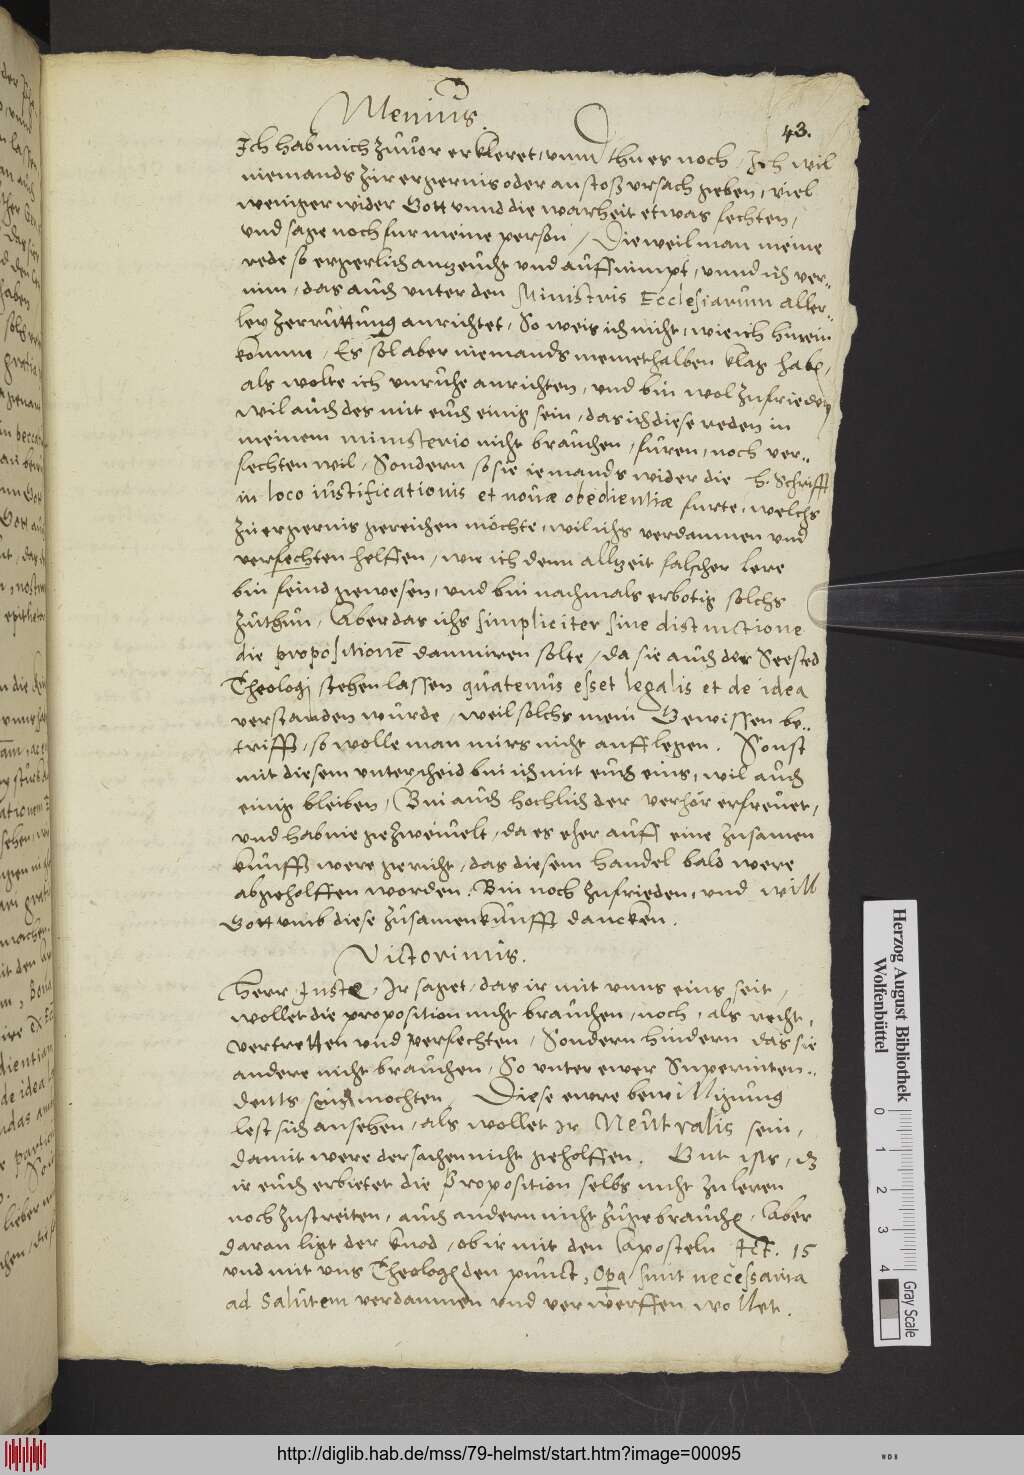 Menius.
43.
Ich hab mich zuuer erkleret, vnnd thu es noch, Ich wil
niemands zur ergernis oder anstoß vrsach geben, viel
weniger wider Gott vnnd die warheit etwas fechten,
vnd sage noch fur meine person, Dieweil man meine
rede so ergerlich anzeucht vnd auffnimpt, vnnd ich ver-
nim, das auch vnter den Ministris Ecclesiarum aller-
ley zerruttung anrichtet, So weis ich nicht, wie ich hirein
komme, Es sol aber niemands meinethalben klag haben,
als wolte ich vnruhe anrichten, vnd bin wol zufrieden,
wil auch des mit euch einig sein, das ich diese reden in
meinem ministerio nicht brauchen, furen, noch ver-
fechten wil, Sondern so sie iemands wider die H. Schrifft
in loco iustificationis et nouae obedientiae furte, welchs
zu ergernis gereichen möchte, wil ichs verdammen vnd
verfechten helffen, wie ich denn allzeit falscher lere
bin feind gewesen, vnd bin nachmals erbotig solchs
zuthun, Aber das ichs simpliciter sine distinctione
die propositionem damniren solte, da sie auch der
Theologi stehen lassen quatenus esset legalis et de idea
verstanden wurde, weil solchs mein Gewissen be-
trifft, so wolle man mirs nicht aufflegen. Sonst
mit diesem vnterscheid bin ich mit euch eins, wil auch
einig bleiben, Bin auch hochlich der verhör erfreuet,
vnd hab nie gezweiuelt, da es eher auff eine zusamen
kunfft were gericht, das diesem handel bald were
abgeholffen worden. Bin noch zufrieden, vnd will
Gott vmb diese zusamenkunfft dancken.
Victorinus.
Herr Juste, Ir saget, das ir mit vnns eins seit,
wollet die proposition nicht brauchen, noch, als recht,
vertretten vnd verfechten, Sondern hindern das sie
andere nicht brauchen, So vnter ewer Superinten-
dents sein mochten, Diese ewre bewilligung
lest sich ansehen, als wollet ir Neutralis sein,
damit were der sachen nicht geholffen. Gut ists, dz
ir euch erbietet die Proposition selbs nicht zu leren
noch zustreiten, auch andern nicht zugebrauchen, Aber
daran ligt der knod, ob ir mit den Aposteln Act. 15
vnd mit vns Theologen den punct, Opera sunt necessaria
ad Salutem verdammen vnd verwerffen wollet.
Herzog August Bibliothek
Wolfenbüttel
0 1 2 3 4
Gray Scale
http://diglib.hab.de/mss/79-helmst/start.htm?image=00095